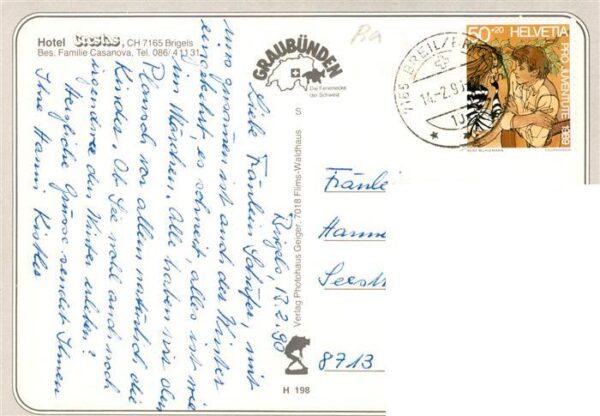 Hotel crestas, CH 7165 Brigels
Bes. Familie Casanova, Tel. 086/4 11 31
GRAUBÜNDEN
Die Ferienecke
der Schweiz
S
Verlag Photohaus Geiger, 7018 Flims-Waldhaus
H 198
50+20 HELVETIA
PRO JUVENTUTE 1989
7165 BREIL/BR
14.-2.9
Brigels 13.2.90
Liebe Fräulein Schäfer, mit
uns zusammen ist auch der Winter
eingekehrt, es schneit, alles ist wie
im Märchen. Alle haben wir den
Plausch vor allem natürlich die
Kinder. Ob Sie wohl auch noch
irgendwo den Winter erleben?
Herzliche Grüsse sendet Ihnen
Ihre Hanni Kistler
Fräulei
Hanne
Seest
8713